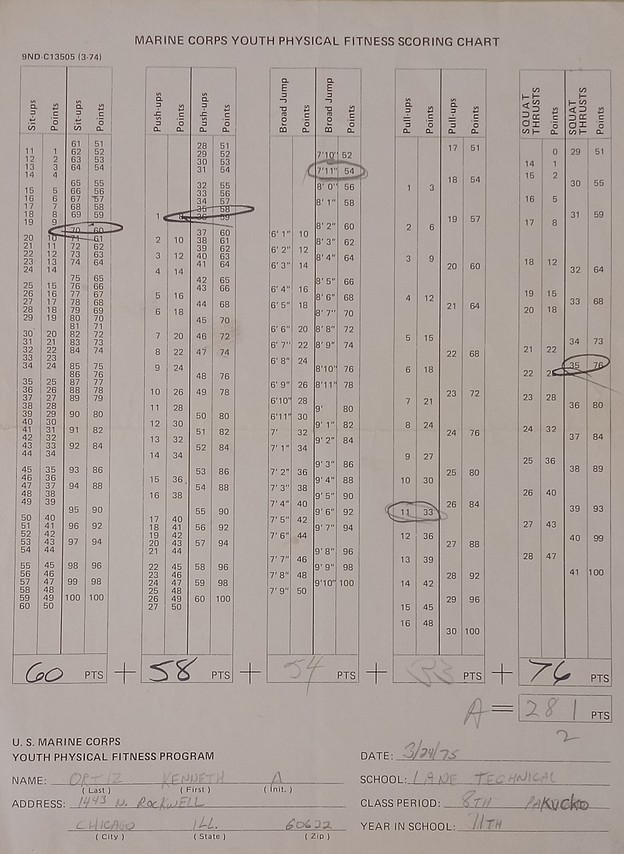 MARINE CORPS YOUTH PHYSICAL FITNESS SCORING CHART
9ND-C13505 (3-74)
Sit-ups Points Sit-ups Points
11 1
12 2
13 3
14 4
15 5
16 6
17 7
18 8
19 9
20 10
21 11
22 12
23 13
24 14
25 15
26 16
27 17
28 18
29 19
30 20
31 21
32 22
33 23
34 24
35 25
36 26
37 27
38 28
39 29
40 30
41 31
42 32
43 33
44 34
45 35
46 36
47 37
48 38
49 39
50 40
51 41
52 42
53 43
54 44
55 45
56 46
57 47
58 48
59 49
60 50
61 51
62 52
63 53
64 54
65 55
66 56
67 57
68 58
69 59
70 60
71 61
72 62
73 63
74 64
75 65
76 66
77 67
78 68
79 69
80 70
81 71
82 72
83 73
84 74
85 75
86 76
87 77
88 78
89 79
90 80
91 82
92 84
93 86
94 88
95 90
96 92
97 94
98 96
99 98
100 100
Push-ups Points Push-ups Points
1
2 10
3 12
4 14
5 16
6 18
7 20
8 22
9 24
10 26
11 28
12 30
13 32
14 34
15 36
16 38
17 40
18 41
19 42
20 43
21 44
22 45
23 46
24 47
25 48
26 49
27 50
28 51
29 52
30 53
31 54
32 55
33 56
34 57
35 58
36 59
37 60
38 61
39 62
40 63
41 64
42 65
43 66
44 68
45 70
46 72
47 74
48 76
49 78
50 80
51 82
52 84
53 86
54 88
55 90
56 92
57 94
58 96
59 98
60 100
Broad Jump Points Broad Jump Points
6' 1" 10
6' 2" 12
6' 3" 14
6' 4" 16
6' 5" 18
6' 6" 20
6' 7" 22
6' 8" 24
6' 9" 26
6'10" 28
6'11" 30
7' 32
7' 1" 34
7' 2" 36
7' 3" 38
7' 4" 40
7' 5" 42
7' 6" 44
7' 7" 46
7' 8" 48
7' 9" 50
7'10" 52
7'11" 54
8' 0" 56
8' 1" 58
8' 2" 60
8' 3" 62
8' 4" 64
8' 5" 66
8' 6" 68
8' 7" 70
8' 8" 72
8' 9" 74
8'10" 76
8'11" 78
9' 80
9' 1" 82
9' 2" 84
9' 3" 86
9' 4" 88
9' 5" 90
9' 6" 92
9' 7" 94
9' 8" 96
9' 9" 98
9'10" 100
Pull-ups Points Pull-ups Points
1 3
2 6
3 9
4 12
5 15
6 18
7 21
8 24
9 27
10 30
11 33
12 36
13 39
14 42
15 45
16 48
17 51
18 54
19 57
20 60
21 64
22 68
23 72
24 76
25 80
26 84
27 88
28 92
29 96
30 100
SQUAT THRUSTS Points SQUAT THRUSTS Points
0
14 1
15 2
16 5
17 8
18 12
19 15
20 18
21 22
22
23 28
24 32
25 36
26 40
27 43
28 47
29 51
30 55
31 59
32 64
33 68
34 73
35 76
36 80
37 84
38 89
39 93
40 99
41 100
60 PTS + 58 PTS + 54 PTS + 33 PTS + 76 PTS
A = 281 PTS
2
U. S. MARINE CORPS
YOUTH PHYSICAL FITNESS PROGRAM
NAME: ORTIZ KENNETH A
( Last ) ( First ) ( Init. )
ADDRESS: 1443 N. ROCKWELL
CHICAGO ILL. 60622
( City ) ( State ) ( Zip )
DATE: 3/24/75
SCHOOL: LANE TECHNICAL
CLASS PERIOD: 8TH PAKUCKO
YEAR IN SCHOOL: 11TH